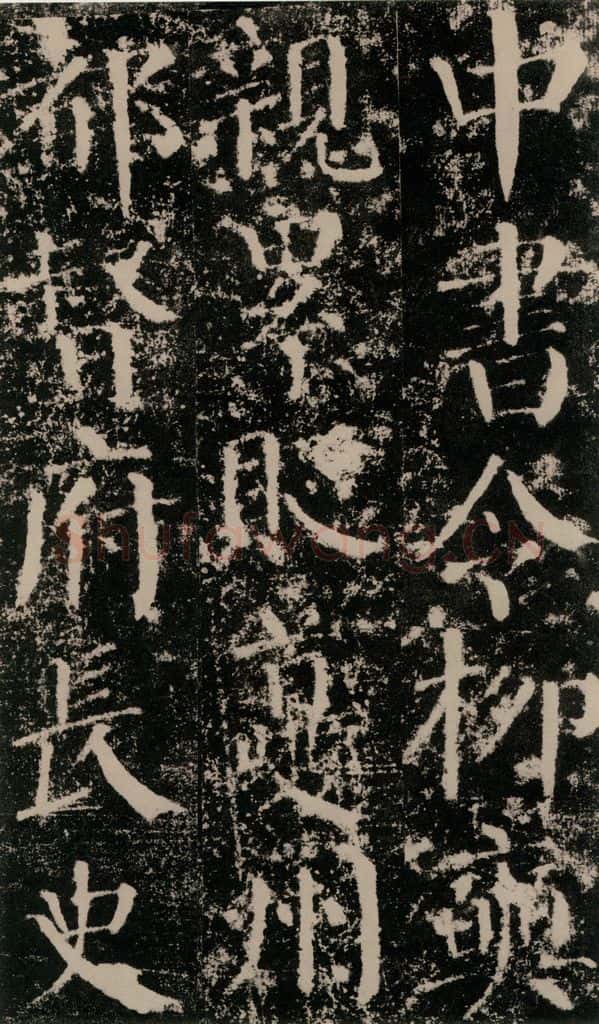 中書令柳奭
親累貶夔州
都督府長史
shufawang.CN